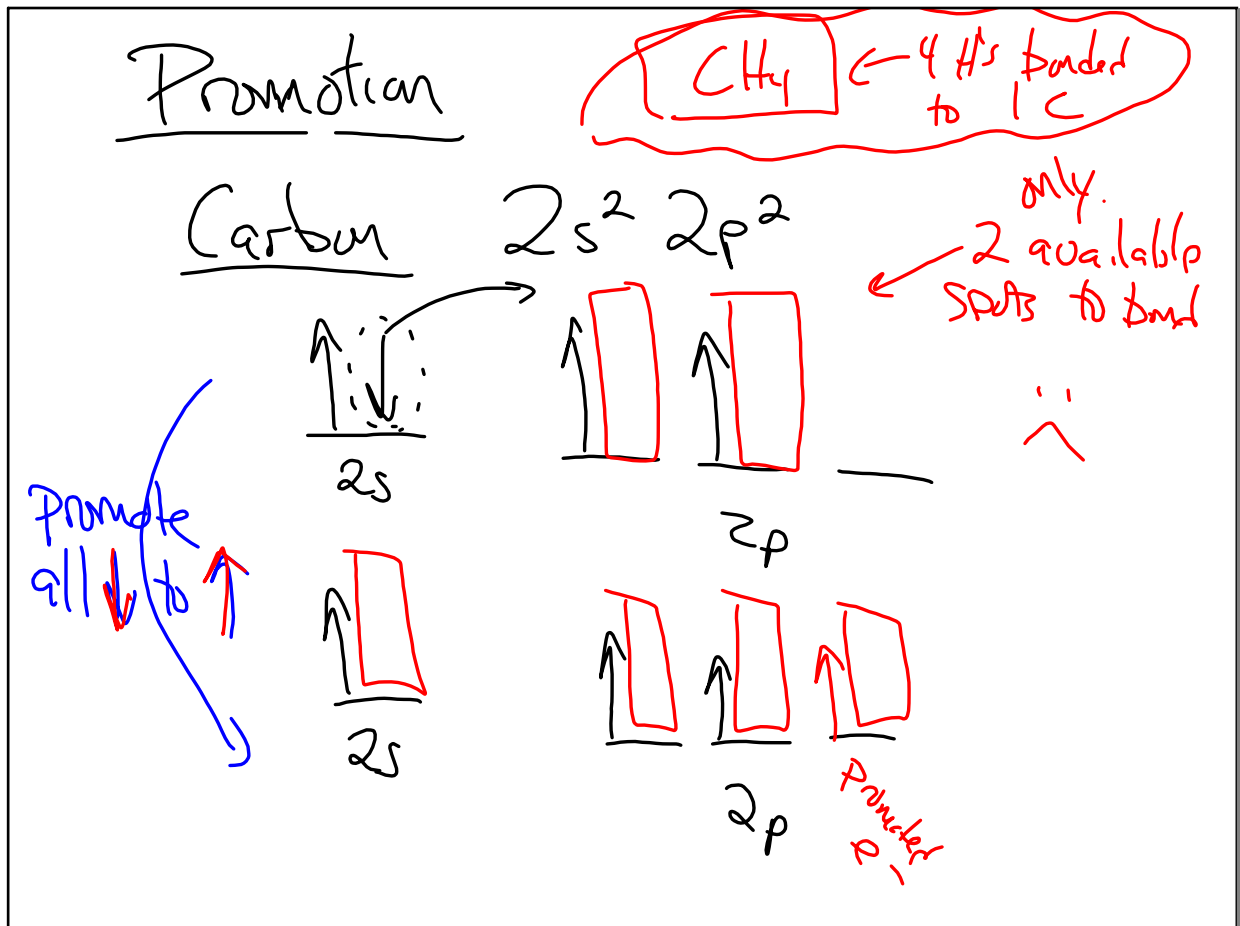 Promotion
CH₄ ← 4 H's bonded
to 1 C
Carbon 2s² 2p²
only
2 available
spots to bond
2s
2p
Promote
all ↓ to ↑
2s
2p
Promoted
e⁻